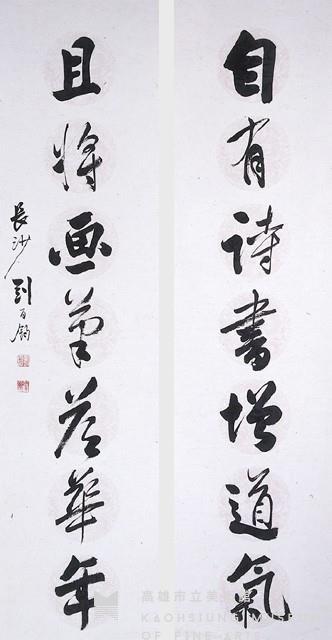 自有詩書增道氣
且將画筆華年
長沙劉百鈞
高雄市立美術館
KAOHSIUNG MUSEUM
OF FINE ARTS